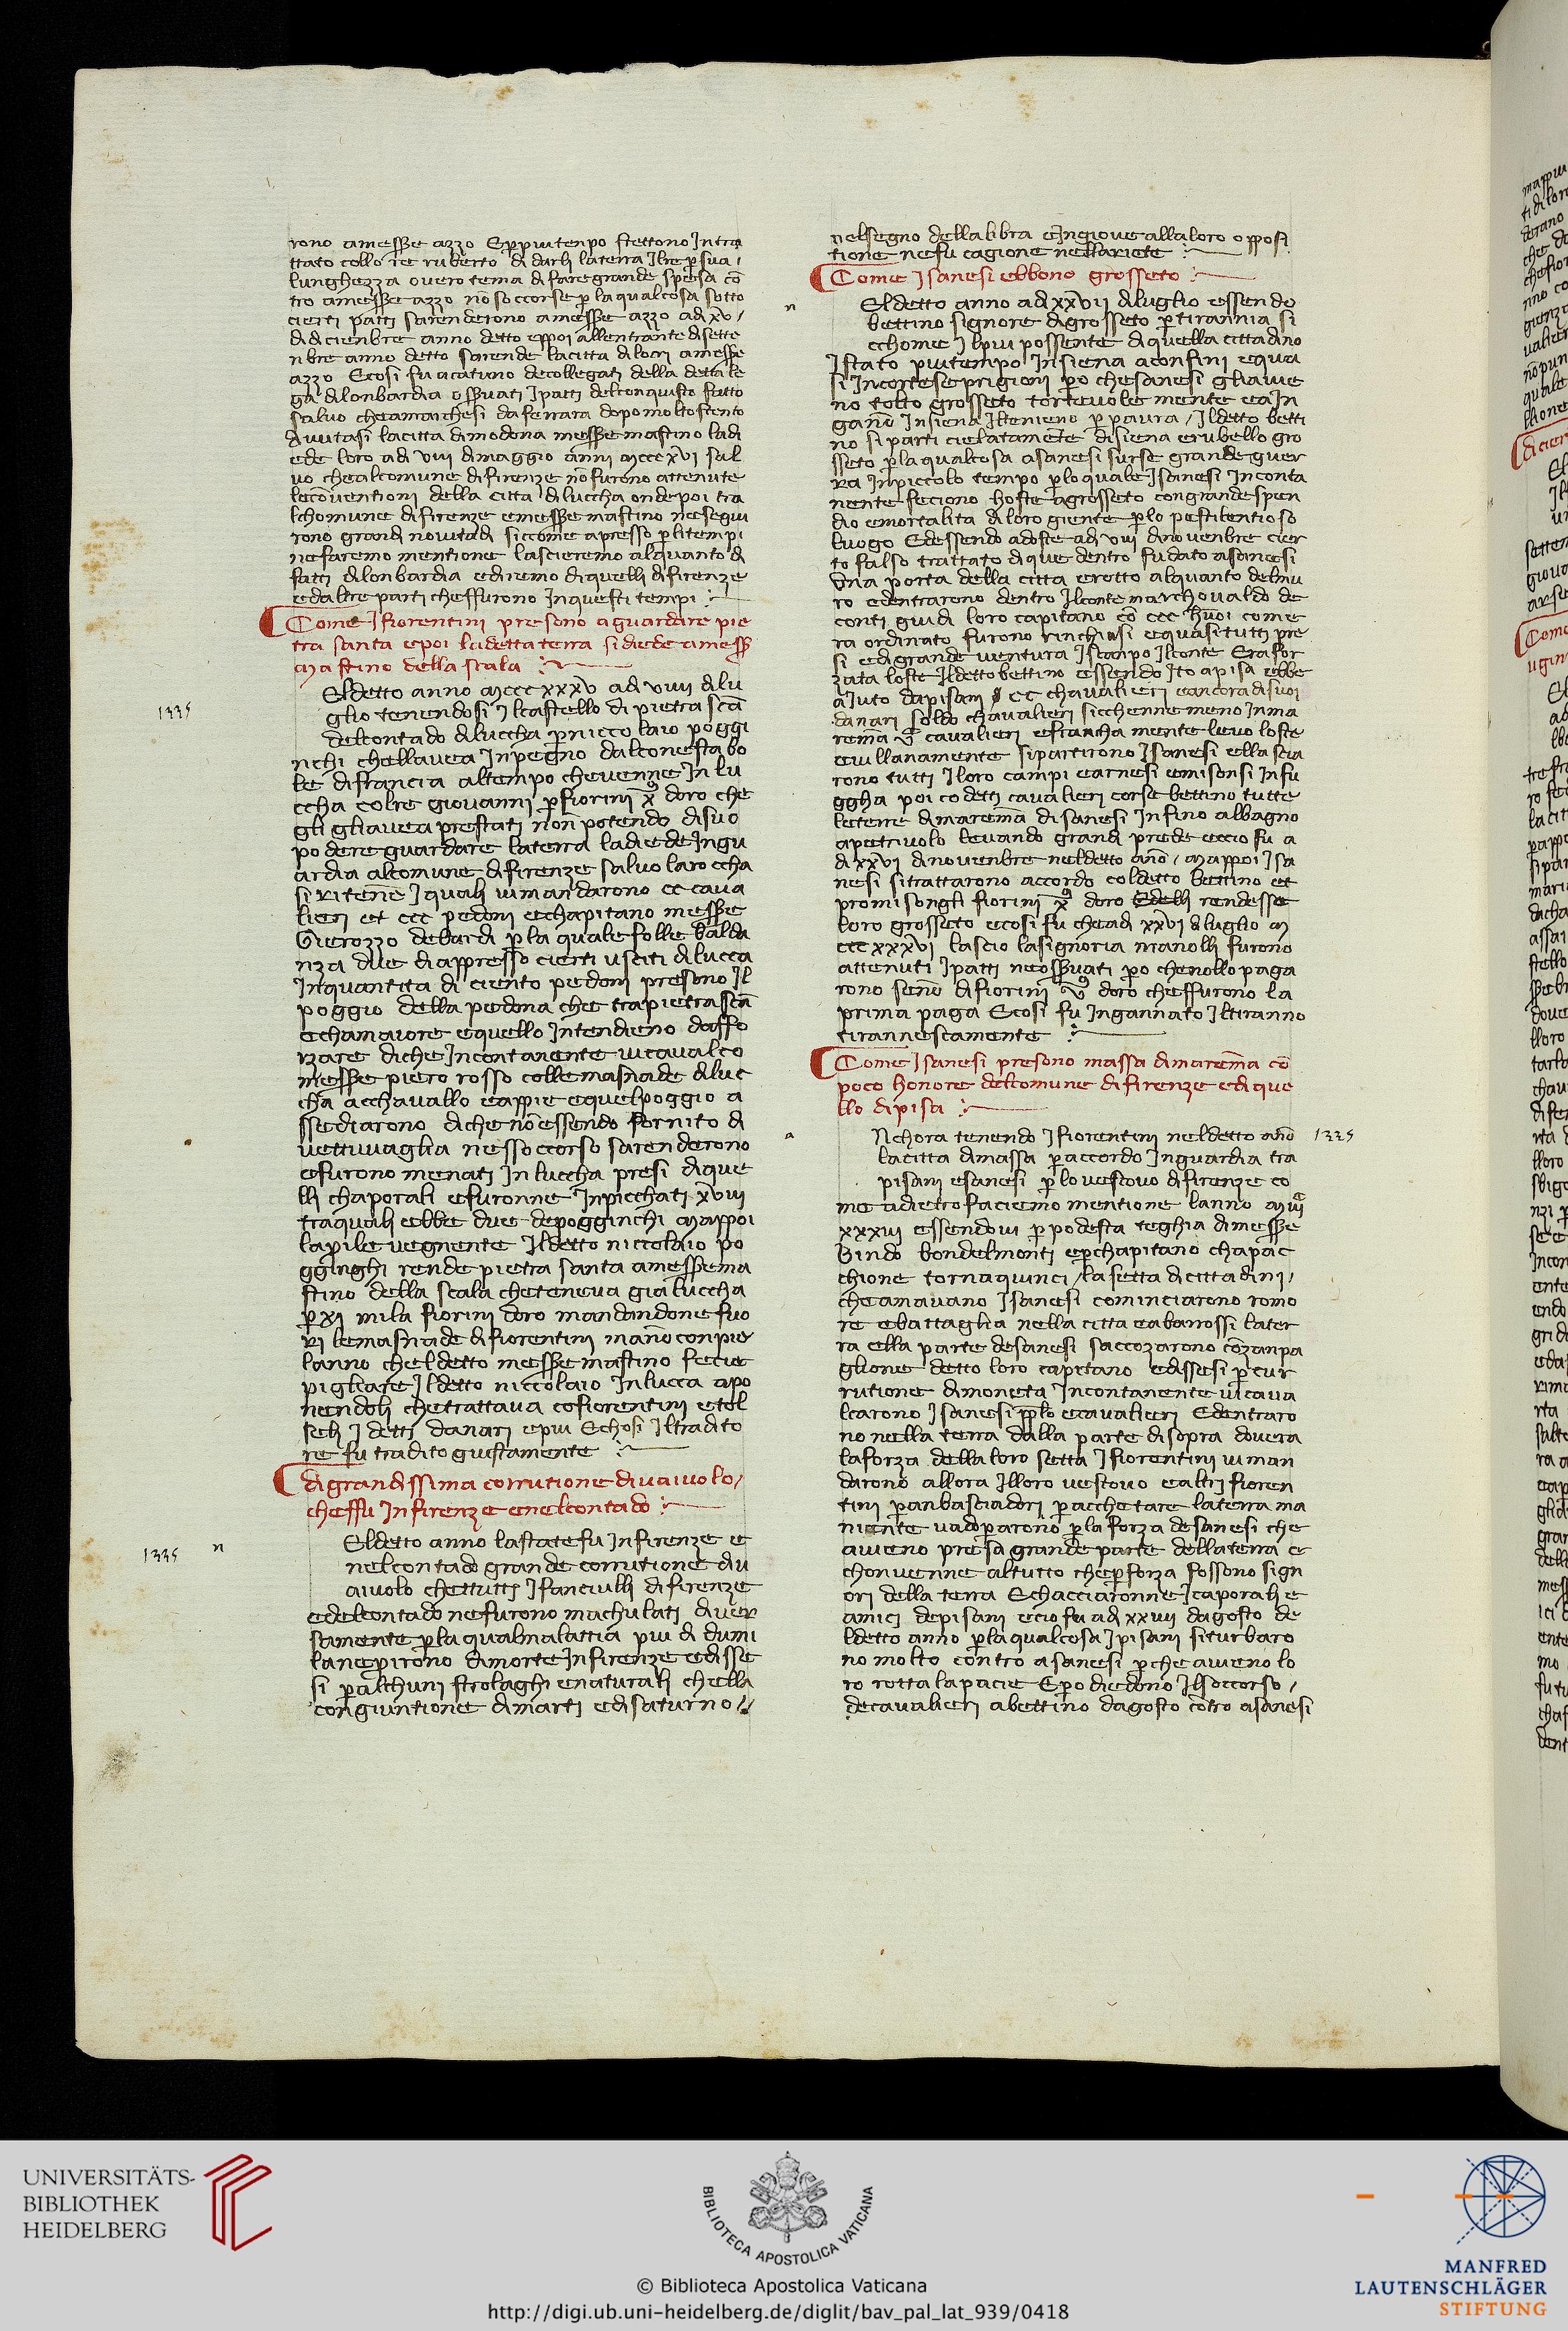 rono amesse azzo Eppiu tenpo stettono Intra
ttato collo re ruberto di darli laterra Ilre p sua /
lunghezza overo tema di fare grande spesa cō
tro amesse azzo nō soccorse p la qualcosa sotto
cierti patti sarenderono amesse azzo adi xv /
di dicienbre anno detto eppoi allentrante disette
nbre anno detto sarende lacitta di lori amesse
azzo Ecosi fu acatuno decollegati della detta le
ga dilonbardia osservati Ipatti delconquisto fatto
salvo cheamarchesi da ferrara dopo molto stento
Avutasi lacitta di modona messe mastino ladi
ede loro adi viii dimaggio anni mccc xvi sal
vo chealcomune difirenze nō furono attenute
lecōventioni della citta diluccha onde poi tra
lchomune difirenze emesse mastino nesegui
rono grandi novitadi siccome apresso p litempi
nefaremo mentione lascieremo alquanto di
fatti dilonbardia ediremo di quelli difirenze
edaltre parti cheffurono Inquesti tempi
Come Ifiorentini presono aguardare pie
tra santa epoi ladetta terra si diede amess
Mastino della scala
Eldetto anno mccc xxxv adi viiii dilu
glio tenendosi Ilcastello di pietra scā
delcontado diluccha p niccolaio poggi
nchi chellavea Inpegno dalconestabo
le difrancia altempo chevenne In lu
ccha colre giovanni p fiorini x̄ doro che
gli gliavea prestati non potendo disuo
podere guardare laterra ladiede Ingu
ardia alcomune difirenze salvo laroccha
si ritenne Iquali vimandarono cc cava
lieri et ccc pedoni echapitano messe
Gierozzo debardi p la quale folle balda
nza due diappresso cierti usciti dilucca
Inquantita di ciento pedoni presono Il
poggio della pedona che trapietrascā
echamaiore equello Intendieno daffo
rzare diche Incontanente vicavalco
messe piero rosso collemasnade diluc
cha acchavallo eappie equelpoggio a
ssediarono diche nōessendo fornito di
vettuvaglia nessoccorso sarenderono
efurono menati In luccha presi dique
lli chaporali efuronne Inpicchati xviii
traquali ebbe due depogginchi Mappoi
laprile vegnente Ildetto niccolaio po
gginghi rende pietra santa amessema
stino della scala cheteneva gia luccha
p xi mila fiorini doro mandandone fuo
ri lemasnade difiorentini manō conpie
lanno cheldetto messe mastino fecie
pigliare Ildetto niccolaio Inlucca apo
nendoli chetrattava cofiorentini etol
seli I detti danari epiu Echosi Iltradito
re fu tradito giustamente
di grandissima corrutione divaivolo /
cheffu Infirenze enelcontado
Eldetto anno lastatefu Infirenze e
nelcontado grande corrutione div
aivolo chettutti Ifanciulli difirenze
edelcontado nefurono machulati diver
samente p la qualmalattia piu di dumi
lanepirono dimorte Infirenze edisse
si p alchuni strolaghi enaturali chella
congiuntione dimarti edisaturno //
nelsegno dellalibra eIngiove allaloro opposi
tione nefu cagione nellariete
Come Isanesi ebbono grosseto
Eldetto anno adi xxvii diluglio essendo
bettino signore digrosseto p tirannia si
cchome Ilpiu possente diquella cittadino
Istato piutempo Insiena aconfini equa
si Incortese prigioni po chesanesi gliavie
no tolto grosseto tortevolemente eaIn
ganō Insiena Iltenieno p paura / Ildetto betti
no si parti cielatamēte disiena erubello gro
sseto p la qualcosa asanesi surse grande guer
ra Inpiccolo tempo p lo quale Isanesi Inconta
nente feciono hoste agrosseto congrandespen
dio emortalita diloro giente p lo pestilentioso
luogo Edessendo adoste adi viii dinovenbre cier
to falso trattato diquedentro fu dato asanesi
Una porta della citta erotto alquanto delmu
ro edentrarono dentro Ilconte marchovaldo de
conti guidi loro capitano cō ccc huōi come
ra ordinato furono rinchiusi equasi tutti pre
si edigrande ventura Iscanpo Ilconte Erafor
zata loste Ildetto bettino essendo Ito apisa ebbe
aiuto dapisani cc chavalieri eancora disuoi
danari soldo chavalieri sicchennemeno Inma
remā v cavalieri efrancha mente levo loste
evillanamente sipartirono Isanesi ellascia
rono tutti Iloro campi earnesi emisonsi Infu
ggha poi co detti cavalieri corse bettino tutte
leterre dimaremā disanesi Infino albagno
apetrivolo levando grandi prede eccio fu a
di xxvi dinovenbre neldetto anō / Mappoi Isa
nesi sitrattarono accordo coldetto bettino et
promisongli fiorini x̄ doro Edelli rendesse
loro grosseto ecosi fu cheadi xxvi diluglio m
ccc xxxvi lascio lasignoria manolli furono
attenuti Ipatti neosservati po chenollo paga
rono senō difiorini v̄ doro cheffurono la
prima paga Ecosi fu Ingannato Iltiranno
tirannescamente
Come Isanesi presono massa dimaremā cō
poco honore delcomune difirenze edi que
llo dipisa
Nchora tenendo Ifiorentini neldetto anō
lacitta dimassa p accordo Inguardia tra
pisani esanesi p lo vescovo difirenze co
me adietro faciemo mentione lanno
xxxiii essendovi p podesta teghia dimesse
Bindo bondelmonti epchapitano chapac
chione tornaquinci / la setta dicittadini /
cheamavano Isanesi cominciarono romo
re ebattaglia nella citta eabarrossi later
ra ella parte desanesi saccozarono cōzanpa
glione detto loro capitano edissesi p cur
rutione dimoneta Incontanente vicava
lcarono Isanesi pplo ecavalieri Edentraro
no nella terra dalla parte disopra dovera
laforza dellaloro setta Ifiorentini viman
darono allora Illoro vescovo ealtri fioren
tini p anbasciadori p acchetare laterra ma
niente vadoparono p la forza desanesi che
avieno presa grande parte dellaterra e
chonvenne altutto chepforza fossono sign
ori della terra Echacciaronne Icaporali e
amici depisani ecio fu adi xxiiii dagosto de
ldetto anno p la qualcosa Ipisani siturbaro
no molto contro asanesi p che avieno lo
ro rotta lapacie Epo diedono Ilsoccorso /
decavalieri abettino dagosto cōtro asanesi
1335
1335
n
n
a
1335
UNIVERSITÄTS-
BIBLIOTHEK
HEIDELBERG
BIBLIOTECA APOSTOLICA VATICANA
© Biblioteca Apostolica Vaticana
http://digi.ub.uni-heidelberg.de/diglit/bav_pal_lat_939/0418
MANFRED
LAUTENSCHLÄGER
STIFTUNG